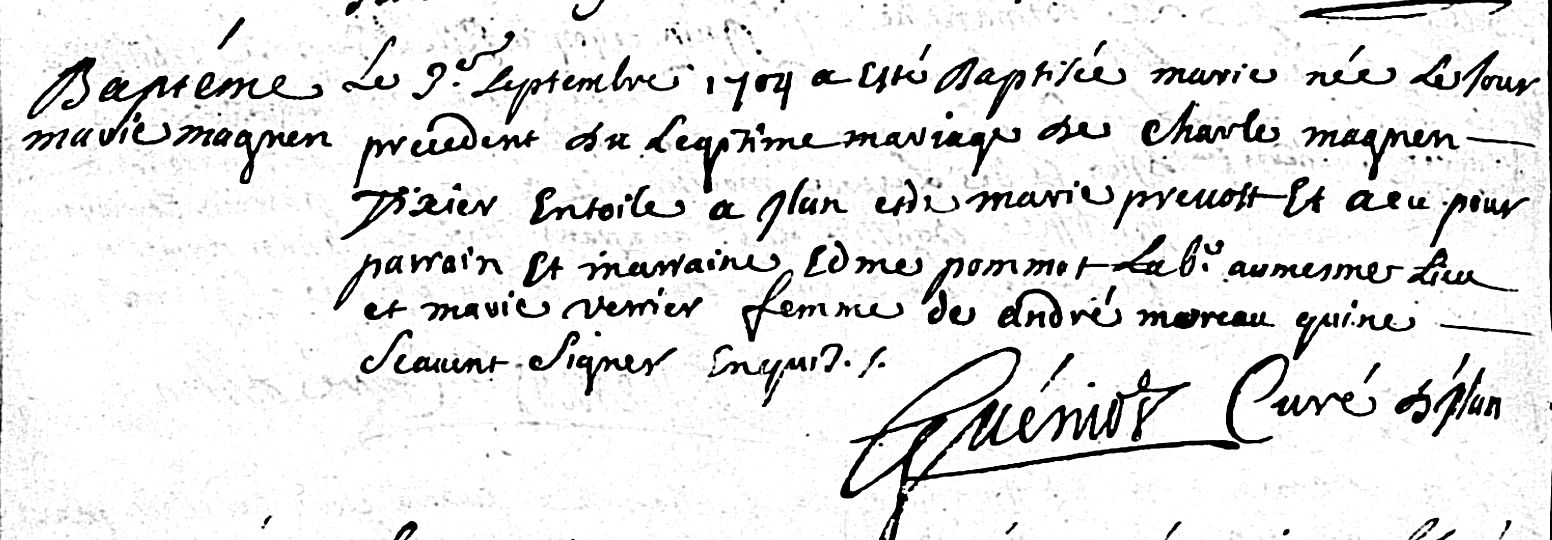 Baptéme
marie magnen
Le 9.e Septembre 1704 a Esté Baptisée marie née Le Jour
precedent du Legitime mariage de Charle magnen
Tixier Entoile a flun et de marie prevost Et a eu pour
parrain Et marraine Edme pommot Lab.r au mesme Lieu
et marie verrier femme de André moreau qui ne
Scavent Signer Enquis ./.
Quéniot Curé de flun